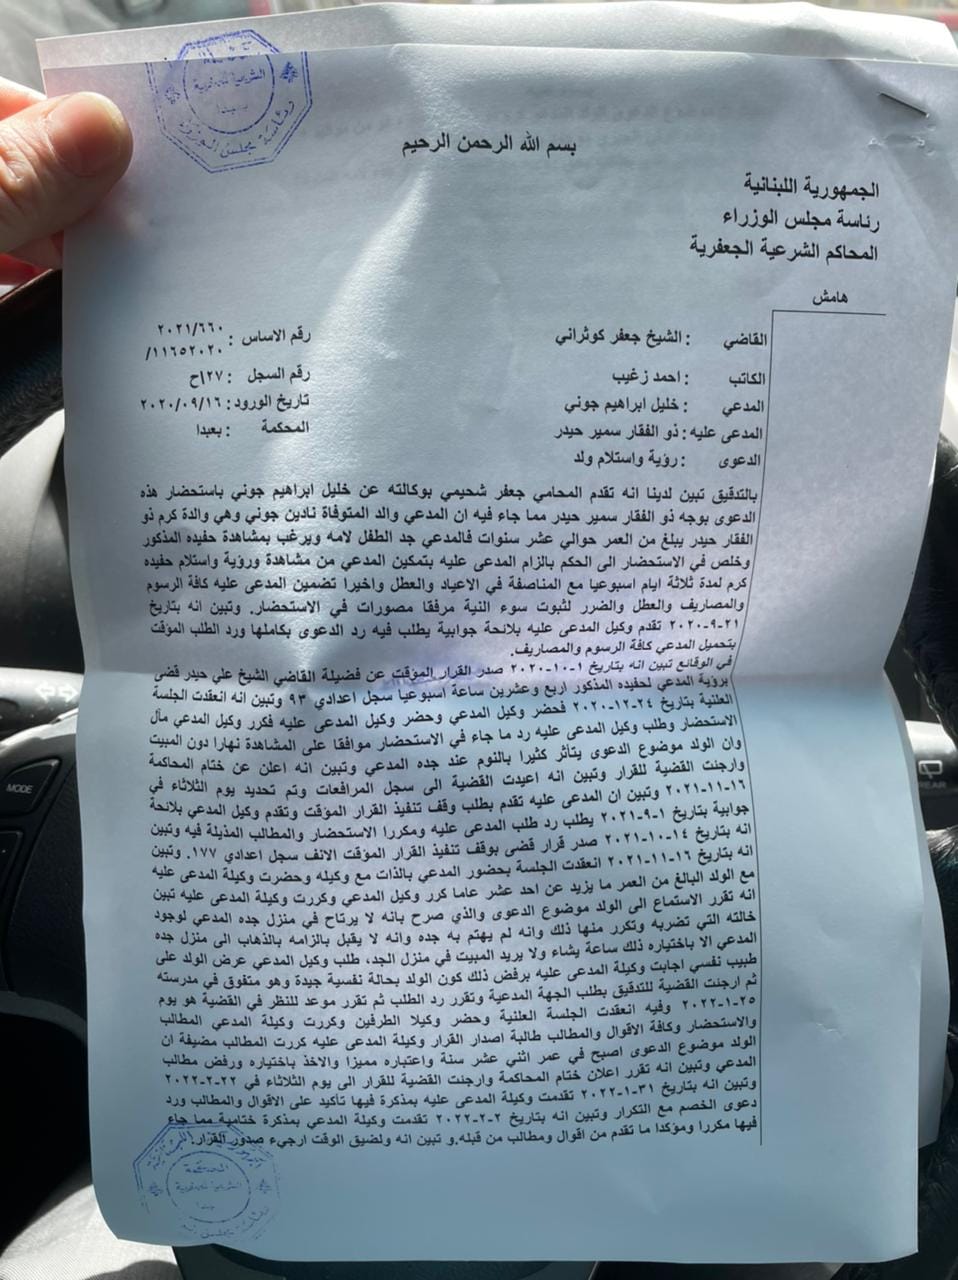 بسم الله الرحمن الرحيم
الجمهورية اللبنانية
رئاسة مجلس الوزراء
المحاكم الشرعية الجعفرية
هامش
القاضي : الشيخ جعفر كوثراني
رقم الاساس : ٢٠٢١/٦٦٠
/١١٦٥٢٠٢٠
الكاتب : احمد زغيب
رقم السجل : ٢٧/ح
المدعي : خليل ابراهيم جوني
تاريخ الورود: ٢٠٢٠/٠٩/١٦
المدعى عليه : ذو الفقار سمير حيدر
المحكمة : بعبدا
الدعوى : رؤية واستلام ولد
بالتدقيق تبين لدينا انه تقدم المحامي جعفر شحيمي بوكالته عن خليل ابراهيم جوني باستحضار هذه
الدعوى بوجه ذو الفقار سمير حيدر مما جاء فيه ان المدعي والد المتوفاة نادين جوني وهي والدة كرم ذو
الفقار حيدر يبلغ من العمر حوالي عشر سنوات فالمدعي جد الطفل لامه ويرغب بمشاهدة حفيده المذكور
وخلص في الاستحضار الى الحكم بالزام المدعى عليه بتمكين المدعي من مشاهدة ورؤية واستلام حفيده
كرم لمدة ثلاثة ايام اسبوعيا مع المناصفة في الاعياد والعطل واخيرا تضمين المدعى عليه كافة الرسوم
والمصاريف والعطل والضرر لثبوت سوء النية مرفقا مصورات في الاستحضار. وتبين انه بتاريخ
٢١-٩-٢٠٢٠ تقدم وكيل المدعى عليه بلائحة جوابية يطلب فيه رد الدعوى بكاملها ورد الطلب المؤقت
بتحميل المدعي كافة الرسوم والمصاريف.
في الوقائع تبين انه بتاريخ ١-١٠-٢٠٢٠ صدر القرار المؤقت عن فضيلة القاضي الشيخ علي حيدر قضى
برؤية المدعي لحفيده المذكور اربع وعشرين ساعة اسبوعيا سجل اعدادي ٩٣ وتبين انه انعقدت الجلسة
العلنية بتاريخ ٢٤-١٢-٢٠٢٠ فحضر وكيل المدعي وحضر وكيل المدعى عليه فكرر وكيل المدعي مآل
الاستحضار وطلب وكيل المدعى عليه رد ما جاء في الاستحضار موافقا على المشاهدة نهارا دون المبيت
وان الولد موضوع الدعوى يتأثر كثيرا بالنوم عند جده المدعي وتبين انه اعلن عن ختام المحاكمة
وارجئت القضية للقرار وتبين انه اعيدت القضية الى سجل المرافعات وتم تحديد يوم الثلاثاء في
١٦-١١-٢٠٢١ وتبين ان المدعى عليه تقدم بطلب وقف تنفيذ القرار المؤقت وتقدم وكيل المدعي بلائحة
جوابية بتاريخ ١-٩-٢٠٢١ يطلب رد طلب المدعى عليه ومكررا الاستحضار والمطالب المذيلة فيه وتبين
انه بتاريخ ١٤-١٠-٢٠٢١ صدر قرار قضى بوقف تنفيذ القرار المؤقت الانف سجل اعدادي ١٧٧. وتبين
انه بتاريخ ١٦-١١-٢٠٢١ انعقدت الجلسة بحضور المدعي بالذات مع وكيله وحضرت وكيلة المدعى عليه
مع الولد البالغ من العمر ما يزيد عن احد عشر عاما كرر وكيل المدعي وكررت وكيلة المدعى عليه تبين
انه تقرر الاستماع الى الولد موضوع الدعوى والذي صرح بانه لا يرتاح في منزل جده المدعي لوجود
خالته التي تضربه وتكرر منها ذلك وانه لم يهتم به جده وانه لا يقبل بالزامه بالذهاب الى منزل جده
المدعي الا باختياره ذلك ساعة يشاء ولا يريد المبيت في منزل الجد، طلب وكيل المدعي عرض الولد على
طبيب نفسي اجابت وكيلة المدعى عليه برفض ذلك كون الولد بحالة نفسية جيدة وهو متفوق في مدرسته
ثم ارجئت القضية للتدقيق بطلب الجهة المدعية وتقرر رد الطلب ثم تقرر موعد للنظر في القضية هو يوم
٢٥-١-٢٠٢٢ وفيه انعقدت الجلسة العلنية وحضر وكيلا الطرفين وكررت وكيلة المدعي المطالب
والاستحضار وكافة الاقوال والمطالب طالبة اصدار القرار وكيلة المدعى عليه كررت المطالب مضيفة ان
الولد موضوع الدعوى اصبح في عمر اثني عشر سنة واعتباره مميزا والاخذ باختياره ورفض مطالب
المدعي وتبين انه تقرر اعلان ختام المحاكمة وارجئت القضية للقرار الى يوم الثلاثاء في ٢٢-٢-٢٠٢٢
وتبين انه بتاريخ ٣١-١-٢٠٢٢ تقدمت وكيلة المدعى عليه بمذكرة فيها تأكيد على الاقوال والمطالب ورد
دعوى الخصم مع التكرار وتبين انه بتاريخ ٢-٢-٢٠٢٢ تقدمت وكيلة المدعي بمذكرة ختامية مما جاء
فيها مكررا ومؤكدا ما تقدم من اقوال ومطالب من قبله.و تبين انه ولضيق الوقت ارجيء صدور القرار.